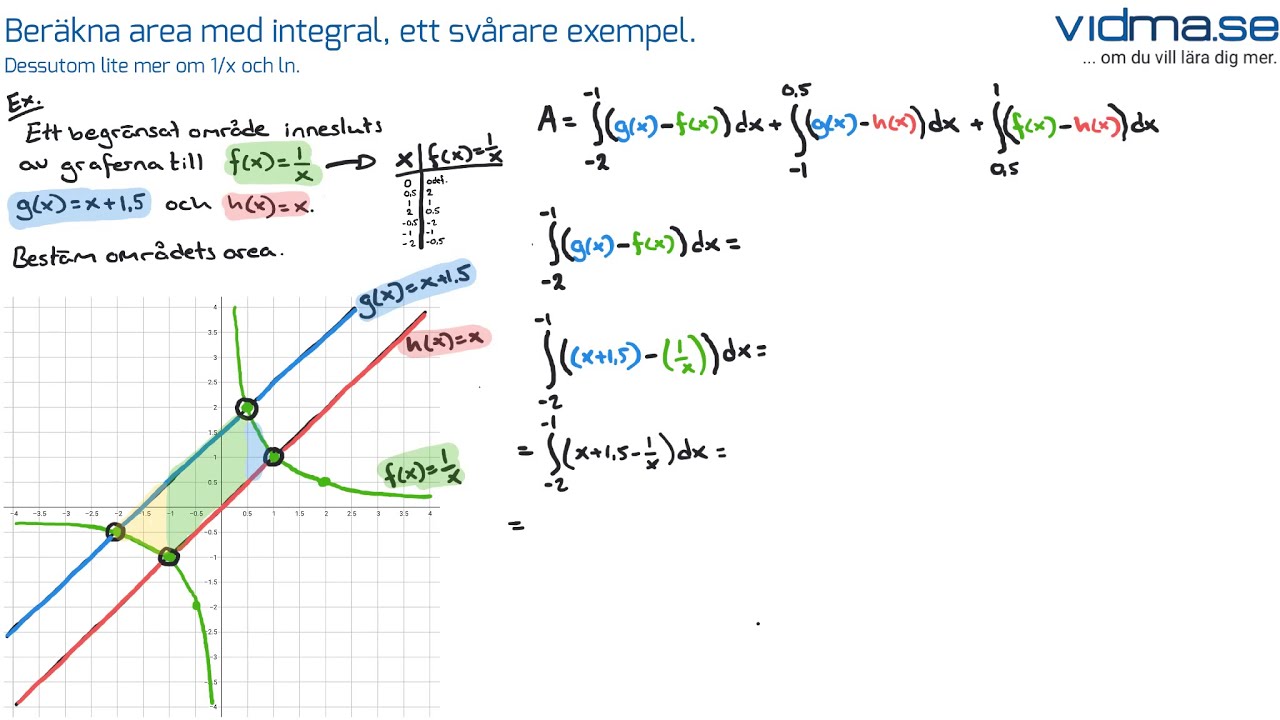 Beräkna area med integral, ett svårare exempel.
Dessutom lite mer om 1/x och ln.
vidma.se
... om du vill lära dig mer.
Ex.
Ett begränsat område innesluts
av graferna till f(x)=1/x →
g(x)=x+1,5 och h(x)=x.
Bestäm områdets area.
x | f(x)=1/x
0 | odef.
0,5 | 2
1 | 1
2 | 0.5
-0,5 | -2
-1 | -1
-2 | -0,5
g(x)=x+1,5
h(x)=x
f(x)=1/x
4
3.5
3
2.5
2
1.5
1
0.5
-4 -3.5 -3 -2.5 -2 -1.5 -1 -0.5 0 0.5 1 1.5 2 2.5 3 3.5 4
-0.5
-1
-1.5
-2
-2.5
-3
-3.5
-4
A = ∫_{-2}^{-1} (g(x)-f(x))dx + ∫_{-1}^{0,5} (g(x)-h(x))dx + ∫_{0,5}^{1} (f(x)-h(x))dx
∫_{-2}^{-1} (g(x)-f(x))dx =
∫_{-2}^{-1} ((x+1,5)-(1/x))dx =
= ∫_{-2}^{-1} (x+1,5-1/x)dx =
=